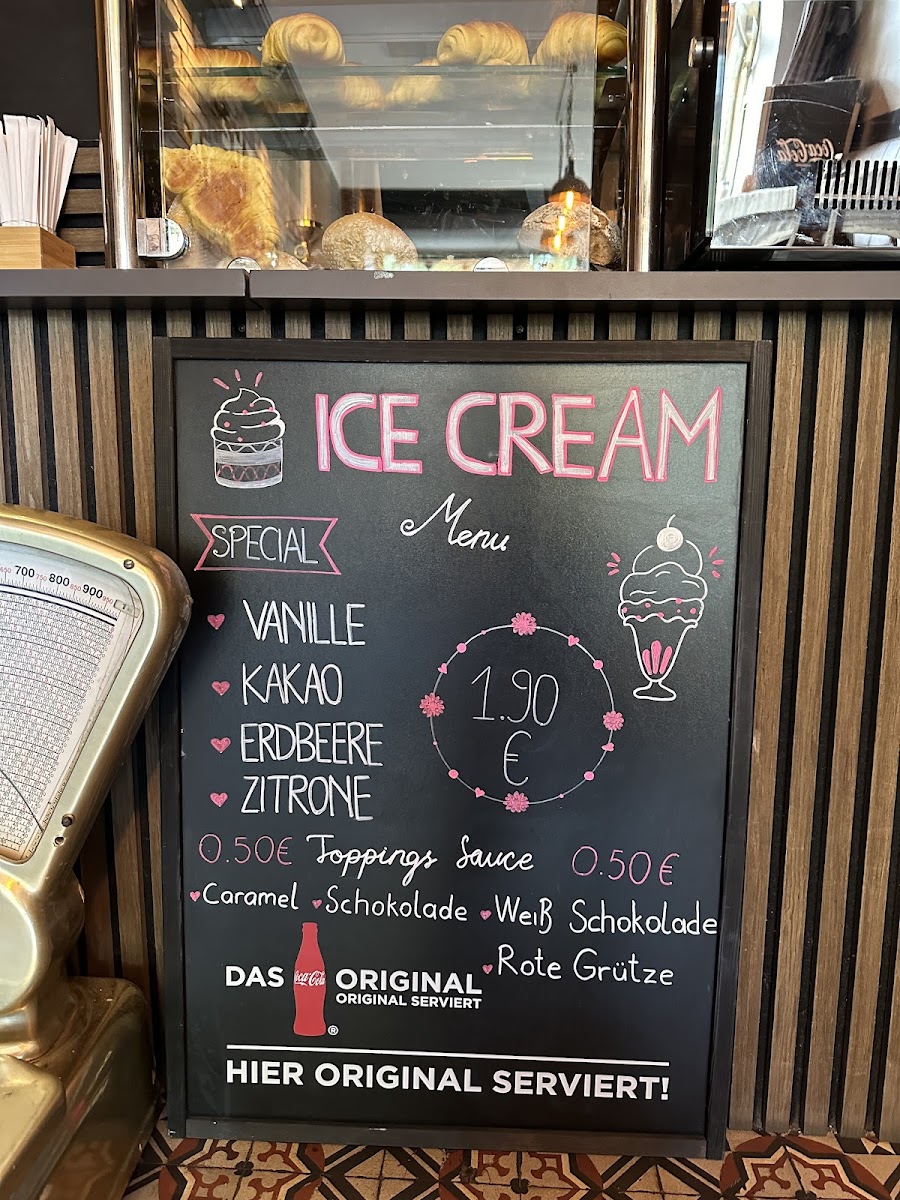 Coca-Cola
650 700 750 800 850 900 950
ICE CREAM
Menu
SPECIAL
VANILLE
KAKAO
ERDBEERE
ZITRONE
1.90
€
0.50€ Toppings Sauce 0.50€
Caramel Schokolade Weiß Schokolade
Rote Grütze
DAS Coca-Cola ORIGINAL
ORIGINAL SERVIERT
®
HIER ORIGINAL SERVIERT!